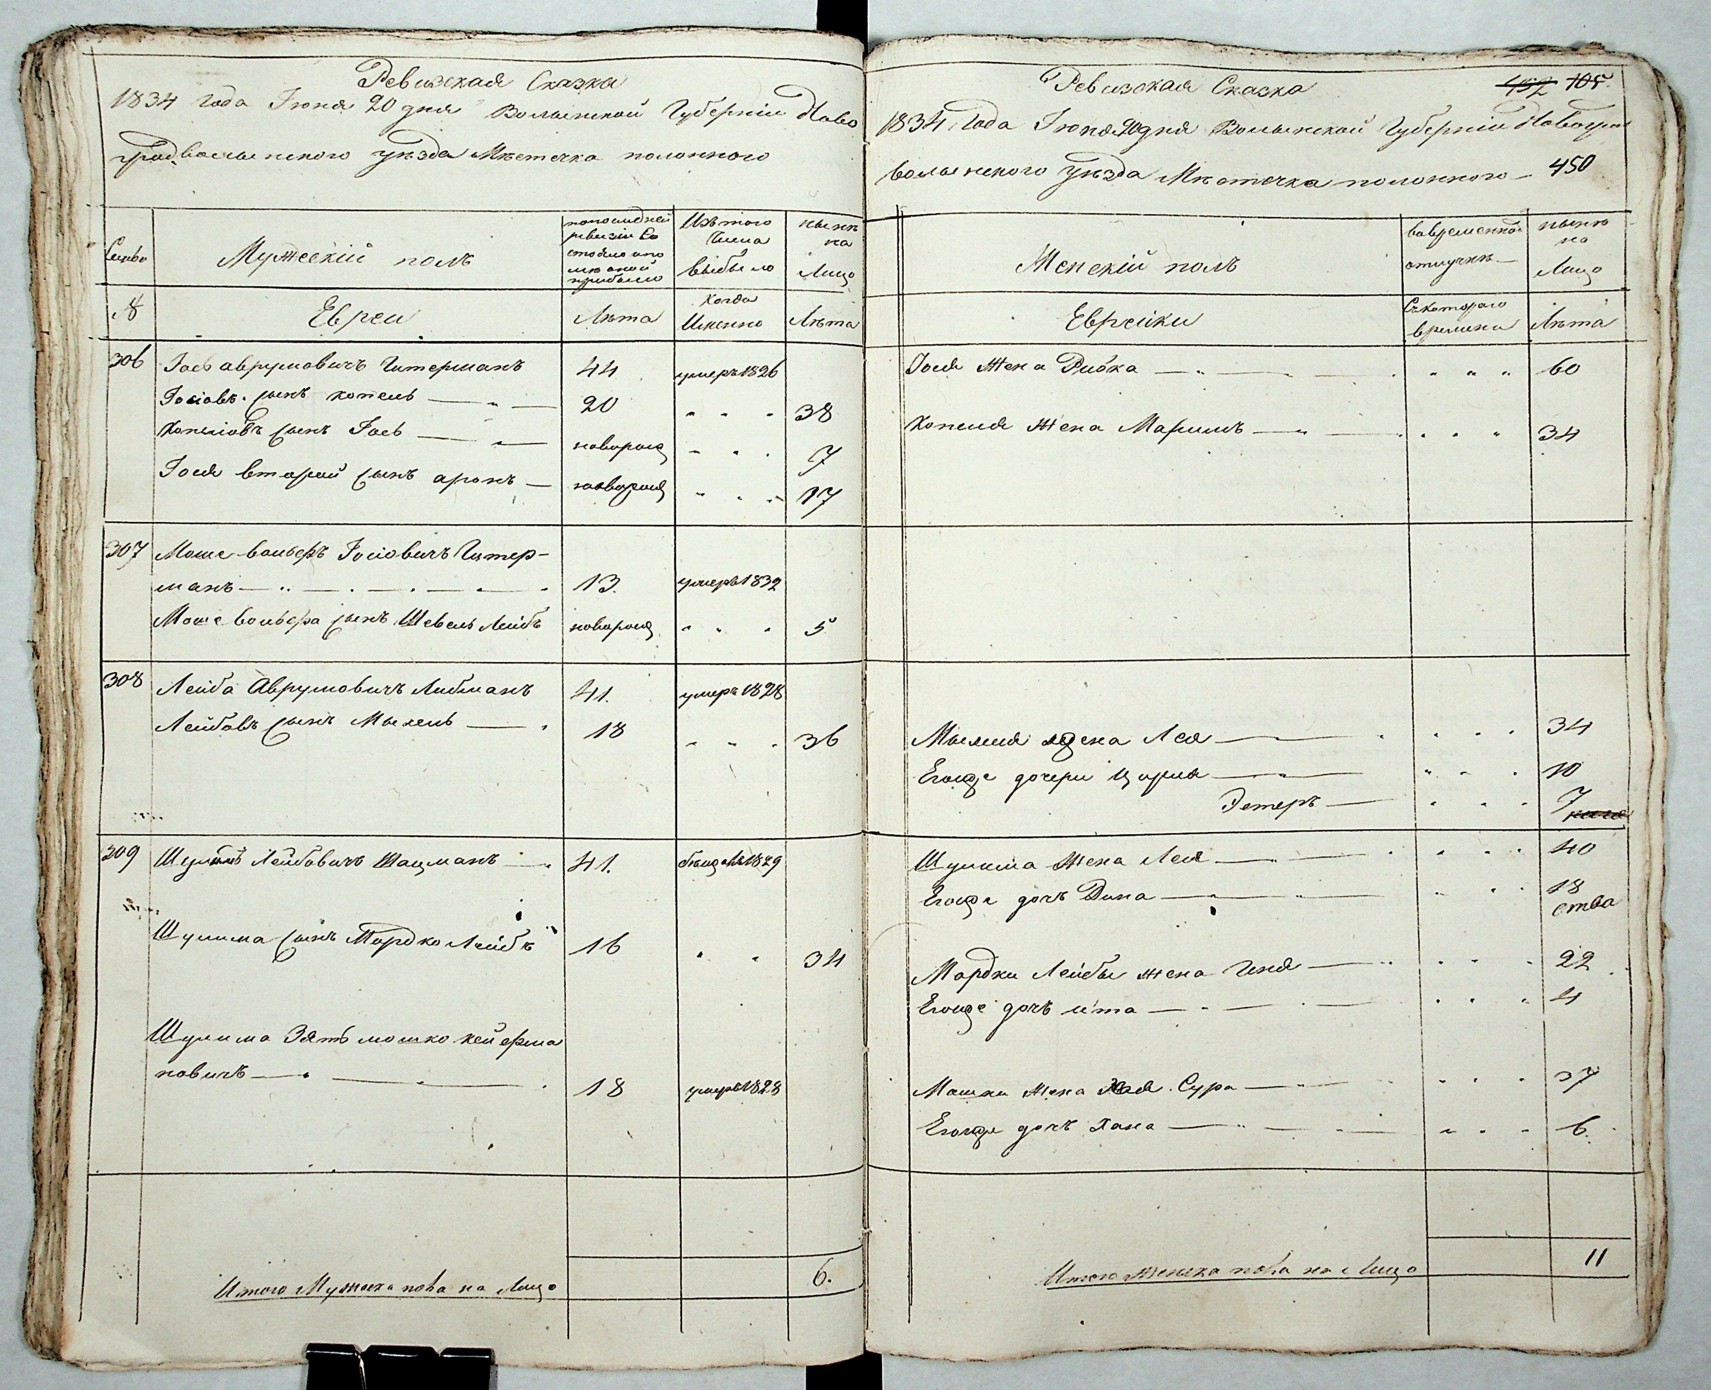 Ревизская Сказка
1834 года Іюня 20 дня Волынской Губерніи Ново
градволынского уезда Мѣстечка полонного
Мужескій полъ
ревизіи
Изъ того
числа
выбыло
нынѣ
на
Лицо
№
Евреи
Лѣта
Когда
Именно
Лѣта
306 Іось аврумовичъ Гитерманъ 44 умеръ 1826
Іосіовъ сынъ копель 20 38
Копеліовъ сынъ Іось новорожд 7
Іося второй сынъ аронъ новорожд 17
307 Моше вольфъ Іосіовичъ Гитер-
манъ 13 умеръ 1832
Моше вольфа сынъ Шевель Лейбъ новорожд 5
308 Лейба Аврумовичъ Либманъ 41 умеръ 1828
Лейбовъ сынъ Мыхель 18 36
309 Шулимъ Лейбовичъ Шацманъ 41 1829
Шулима сынъ Мордко Лейбъ 16 34
Шулима Зять мошко
новичъ 18 умеръ 1828
Итого Мужеска пола на Лицо 6.
Ревизская Сказка 452 105
1834 Года Іюня 20 дня Волынской Губерніи Новоград
волынского уезда Мѣстечка полонного 450
Женскій полъ
вовременной
отлучкѣ
нынѣ
на
Лицо
Еврейки
Съкотораго
времени
Лѣта
Іося Жена Ривка 60
Копеля Жена Маримъ 34
Мыхеля жена Лея 34
Егожде дочери 10
Эстеръ 7
Шулима Жена Лея 40
Егожде дочъ Дина 18
ства
Мордки Лейбы жена Гиня 22
Егожде дочъ ита 4
Мошки жена Хая Сура 37
Егожде дочъ Хана 6
Итого Женска пола на Лицо 11